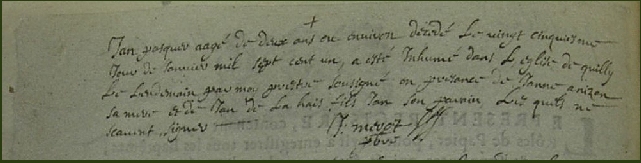 Jan pasquer aagé de deux ans ou environ décédé Le vingt cinquiesme
Jour de Janvier mil sept cent un, a esté Inhumé dans L'eglise de quilly
Le Lendemain par moy prestre soussigné en presance de Janne
sa mere et de Jan de La hais fils Jan son parain Lesquels ne
scavent signer